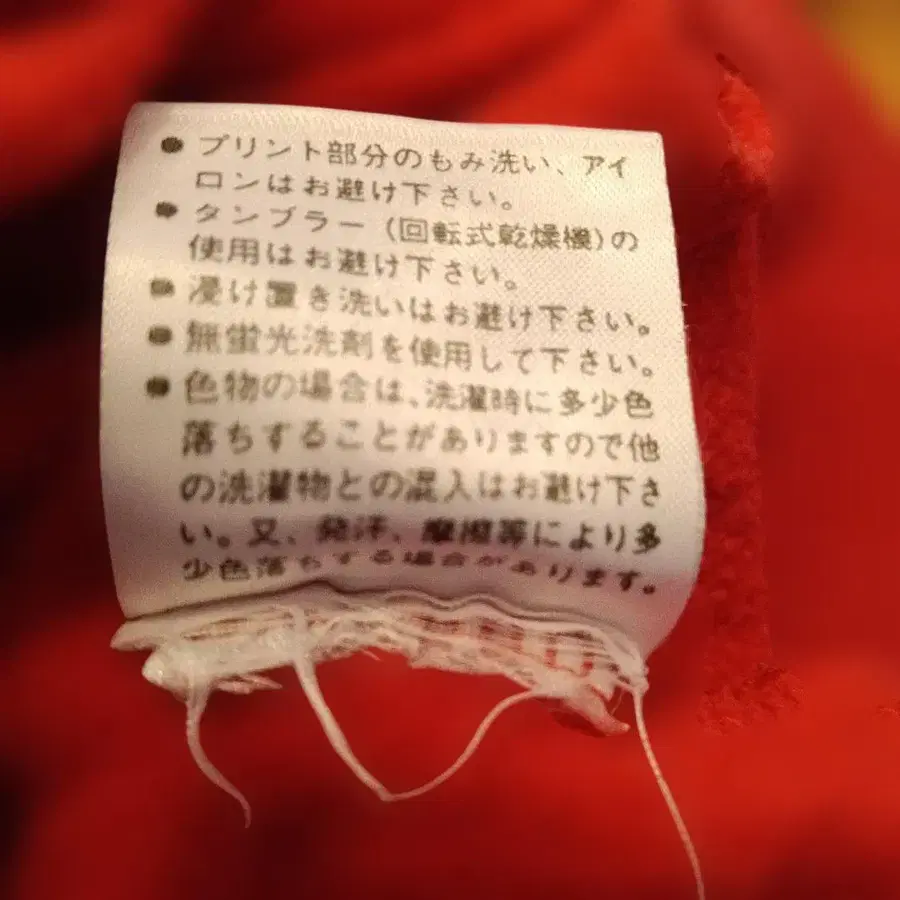 ● プリント部分のもみ洗い、アイ
ロンはお避け下さい。
● タンブラー(回転式乾燥機)の
使用はお避け下さい。
● 浸け置き洗いはお避け下さい。
● 無蛍光洗剤を使用して下さい。
● 色物の場合は、洗濯時に多少色
落ちすることがありますので他
の洗濯物との混入はお避け下さ
い。又、発汗、摩擦等により多
少色落ちする場合があります。